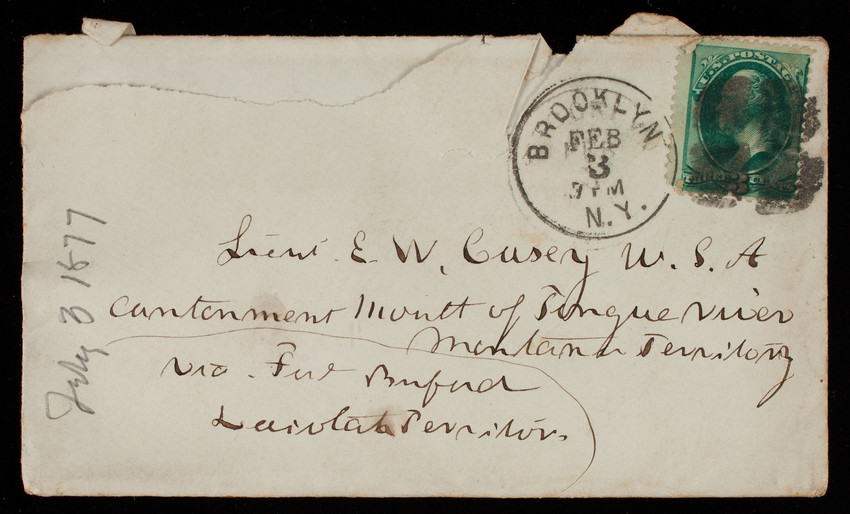 BROOKLYN
FEB
3
7 PM
N.Y.
U.S. POSTAGE
Lieut. E. W. Casey U. S. A
Cantonment Mouth of Tongue River
Montana Territory
Via. Fort Buford
Dacotah Territory.
Feby 3 1877